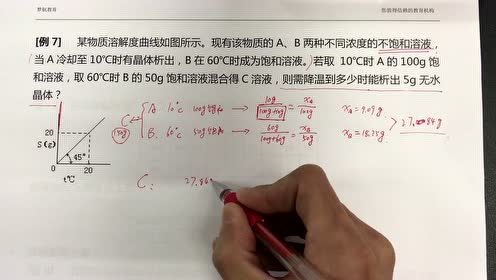 梦航教育
您值得信赖的教育机构
[例 7] 某物质溶解度曲线如图所示。现有该物质的 A、B 两种不同浓度的不饱和溶液，
当 A 冷却至 10℃时有晶体析出，B 在 60℃时成为饱和溶液。若取 10℃时 A 的 100g 饱
和溶液，取 60℃时 B 的 50g 饱和溶液混合得 C 溶液，则需降温到多少时能析出 5g 无水
晶体？
C
150g
A 10℃ 100g
10g/(100g+10g) = xA/100g
xA=9.09g
B. 60℃ 50g
60g/(100g+60g) = xB/50g
xB=18.75g
27.84g
20
S(g)
45°
20
t℃
C: